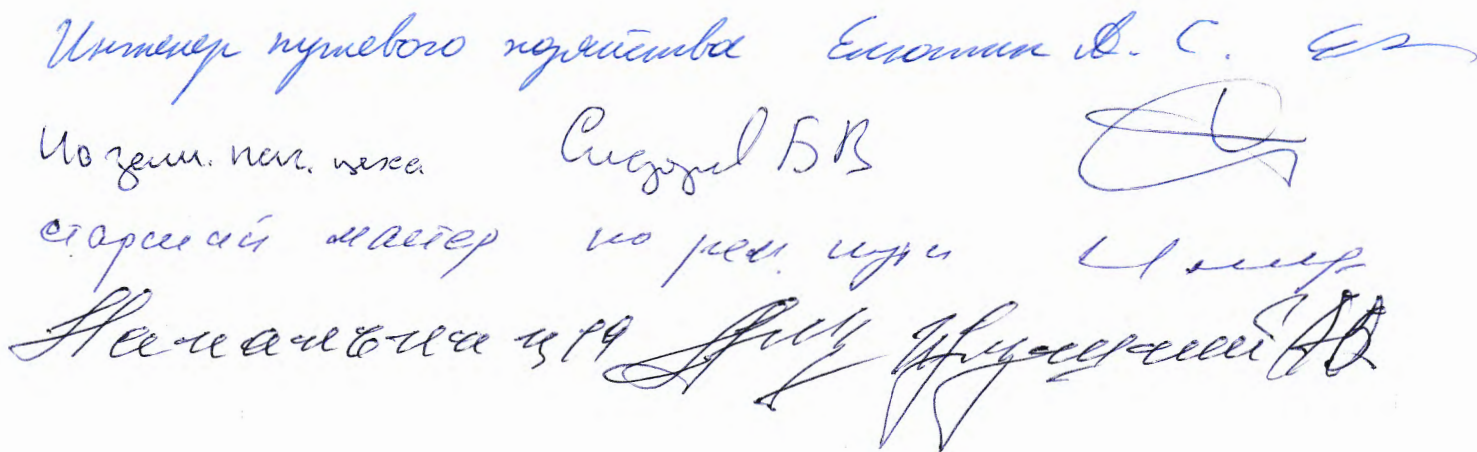 Инженер путевого хозяйства Елютин А. С.
Ио зам. нач. цеха Сидоров БВ
старший мастер по рем. пути
Начальник ц 19